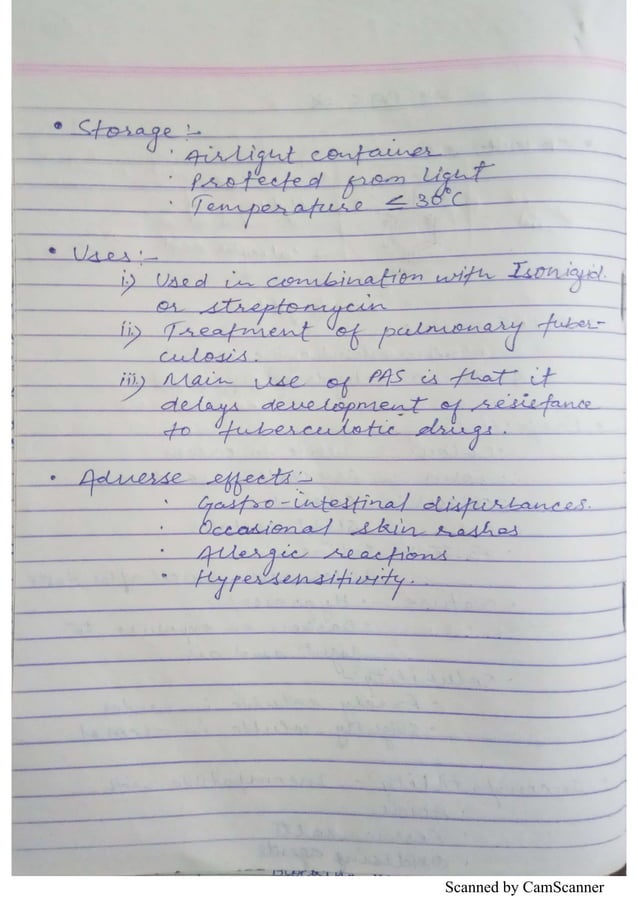 • Storage :-
· Airtight container
· Protected from light
· Temperature ≤ 30°C
• Uses :-
i) Used in combination with Isoniazid
or streptomycin
ii) Treatment of pulmonary tuber-
culosis.
iii) Main use of PAS is that it
delays development of resistance
to tuberculotic drugs.
• Adverse effects :-
· Gastro-intestinal disturbances.
· Occasional skin rashes
· Allergic reactions
· Hypersensitivity.
Scanned by CamScanner